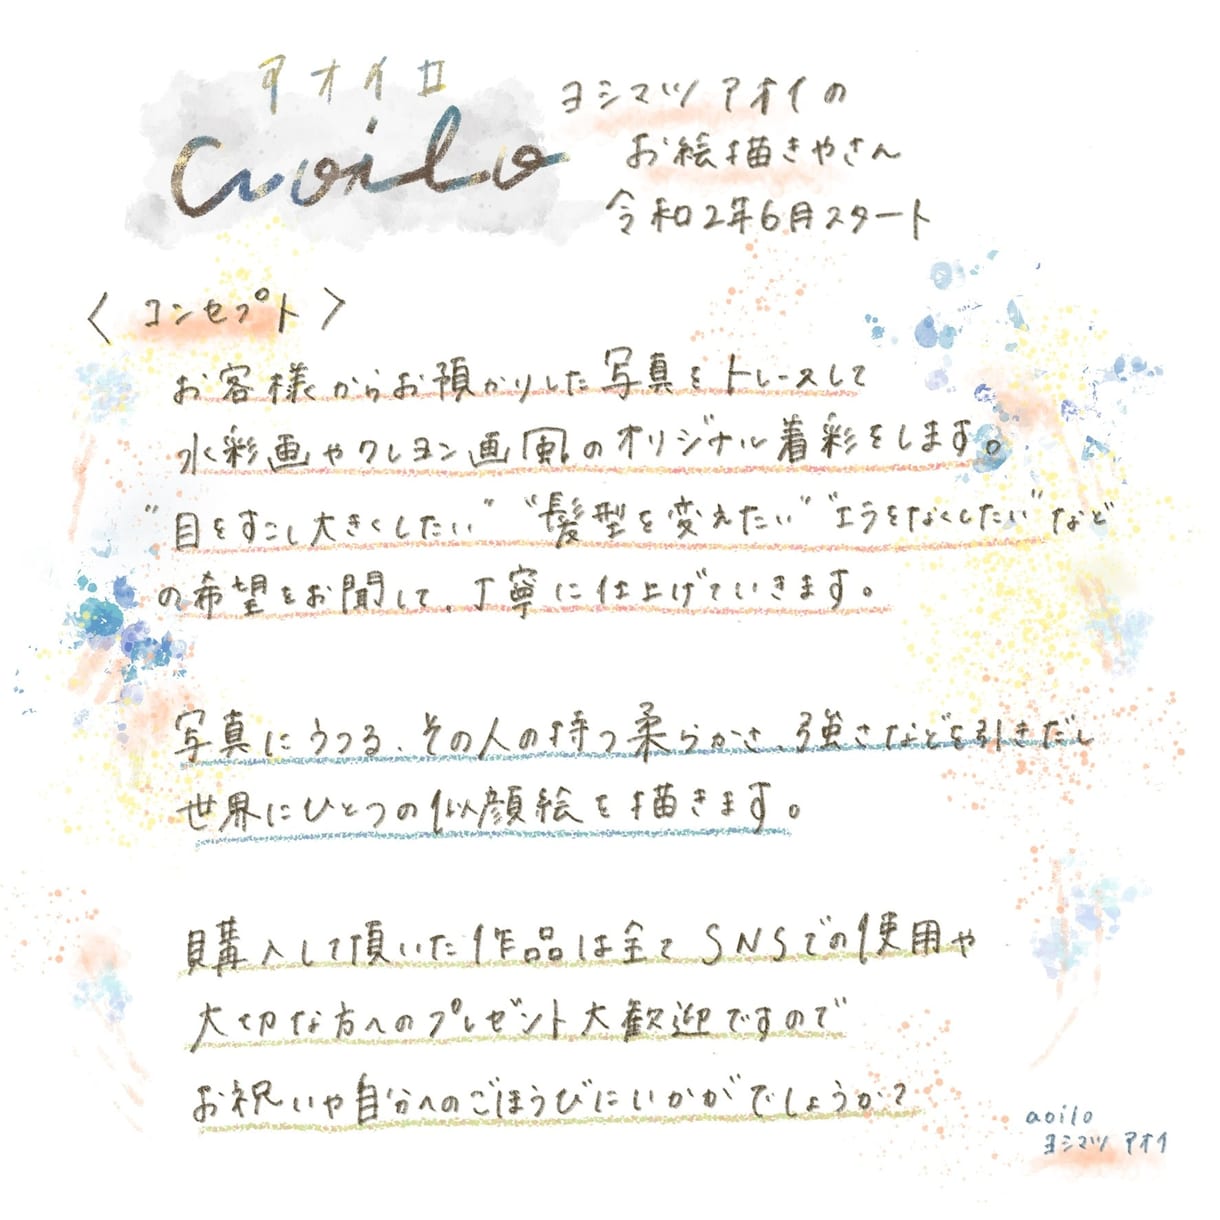 アオイロ
aoilo
ヨシマツ アオイの
お絵描きやさん
令和2年6月スタート
〈 コンセプト 〉
お客様からお預かりした写真をトレースして
水彩画やクレヨン画風のオリジナル着彩をします。
"目をすこし大きくしたい" "髪型を変えたい" "エラをなくしたい" など
の希望をお聞して、丁寧に仕上げていきます。
写真にうつる、その人の持つ柔らかさ、強さなどを引きだし
世界にひとつの似顔絵を描きます。
購入して頂いた作品は全てSNSでの使用や
大切な方へのプレゼント大歓迎ですので
お祝いや自分へのごほうびにいかがでしょうか?
aoilo
ヨシマツ アオイ